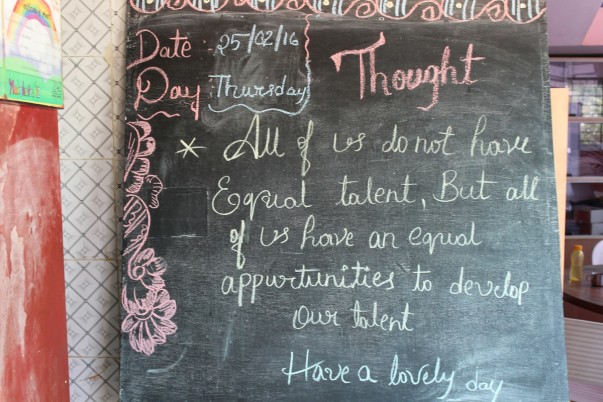 Date 25/02/16
Day Thursday
Thought
* All of us do not have
Equal talent, But all
of us have an equal
appurtunities to develop
Our talent
Have a lovely day